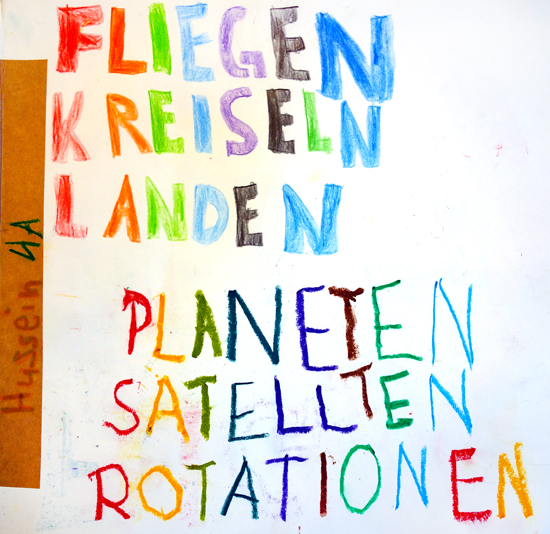 FLIEGEN
KREISELN
LANDEN
PLANETEN
SATELLTEN
ROTATIONEN
Hussein 4A